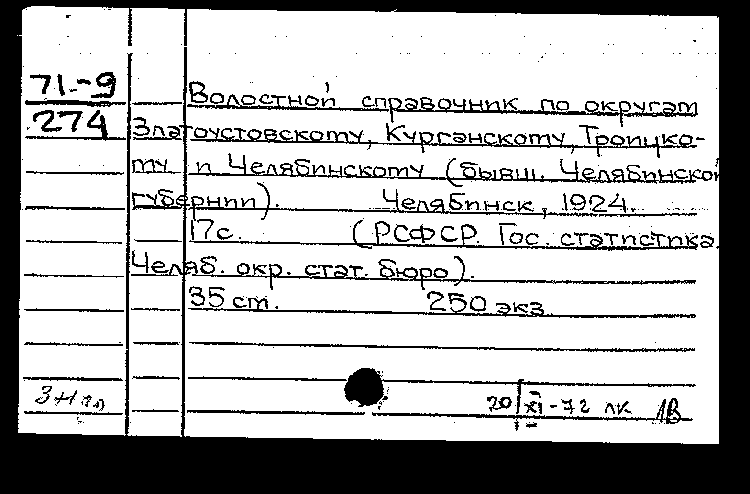 71-9
274
Волостной справочник по округам
Златоустовскому, Курганскому, Троицко-
му и Челябинскому (бывш. Челябинской
губернии). Челябинск, 1924.
17с. (РСФСР. Гос. статистика.
Челяб. окр. стат. бюро).
35 см. 250 экз.
20/XI-72 лк 1В